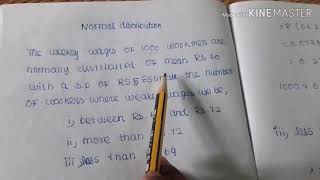 Made with KINEMASTER
Normal distribution
The weekly wages of 1000 workmen are
normally distributed of mean Rs.70
with a S.D of Rs.5 Estimate the number
of workers where weekly wages will be,
i, between Rs. and Rs.72
ii, more than .72
iii, less than 69
= 0.
1000 x